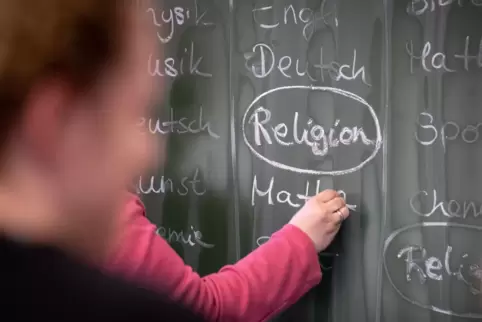 ysik
usik
eutsch
unst
emie
Engl
Deutsch
Religion
Mathe
Bio
Math
Spo
Chem
Relig